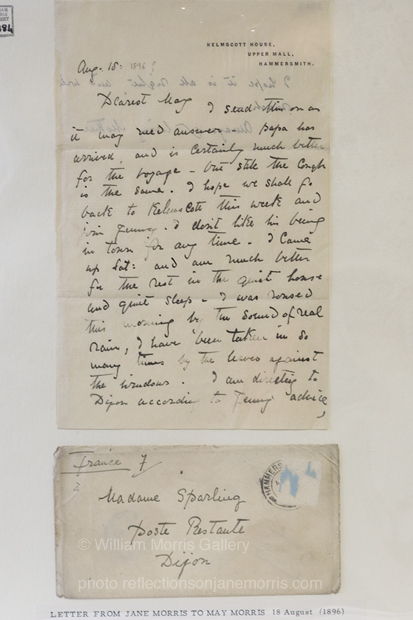 KELMSCOTT HOUSE,
UPPER MALL,
HAMMERSMITH.
Aug. 18: 1896 ?
Dearest May I send this on as
it may need answer - Papa has
arrived, and is certainly much better
for the voyage - but still the cough
is the same. I hope we shall go
back to Kelmscott this week and
join Jenny. I don't like his being
in town for any time. I came
up Sat: and am much better
for the rest in the quiet house
and quiet sleep - I was roused
this morning by the sound of real
rain, I have been taken in so
many times by the leaves against
the windows. I am directing to
Dijon according to Jenny's advice,
France 7
HAMMERS
Madame Sparling
Poste Restante
Dijon
© William Morris Gallery
photo reflectionsonjanemorris.com
LETTER FROM JANE MORRIS TO MAY MORRIS 18 August (1896)